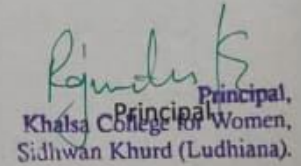 Principal,
Principal
Khalsa College for Women,
Sidhwan Khurd (Ludhiana).